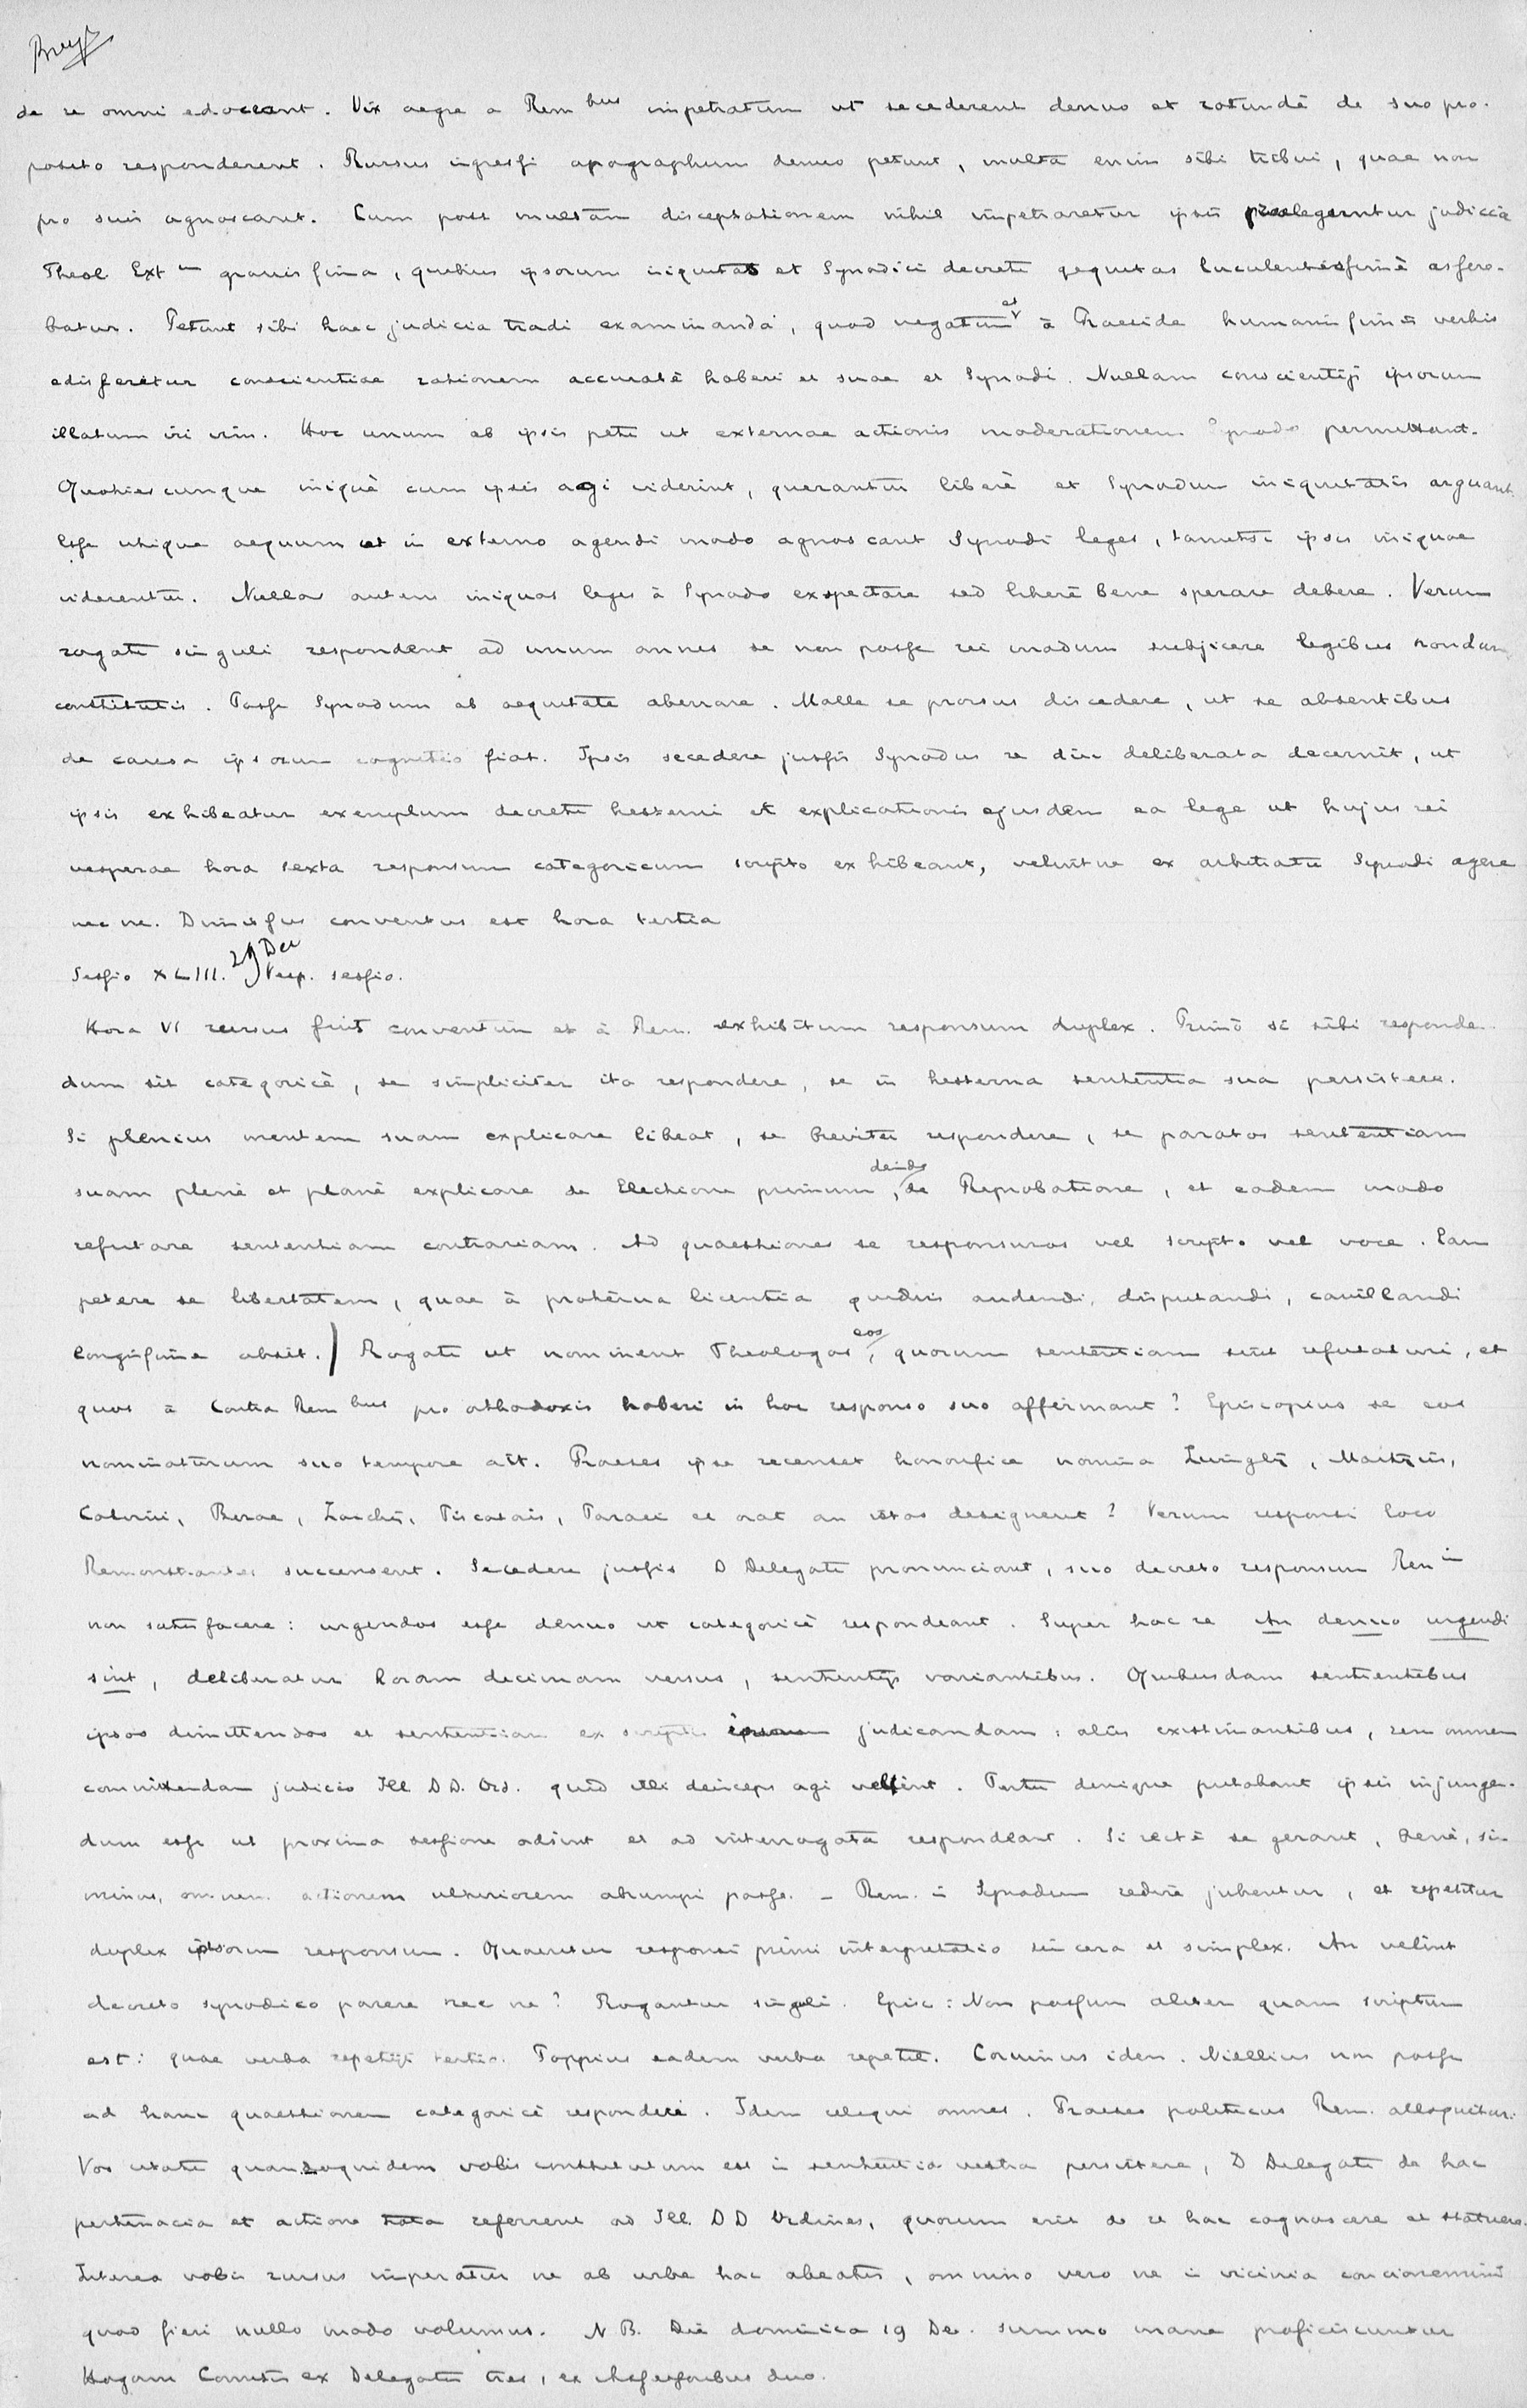 de re omni edoceant. Vix aegre a Rem bus impetratum ut secederent denuo et rotundè de suo pro-
posito responderent. Rursus ingressi apographum denuo petunt, multa enim sibi tribui, quae non
pro suis agnoscant. Cum post multam disceptationem nihil impetraretur ipsis praelegerentur judicia
Theol. Ext m gravissima, quibus ipsorum iniquitas et Synodici decreti aequitas luculentissimè asser-
batur. Petunt sibi haec judicia tradi examinanda, quod negatum et à Praeside humanissimis verbis
edisseritur conscientiae rationem accuratè haberi et suae et Synodi. Nullam conscientijs ipsorum
illatum iri vim. Hoc unum ab ipsis peti ut externae actionis moderationem Synodo permittant.
Quotiescunque iniquè cum ipsis agi viderint, querantur liberè et Synodum iniquitatis arguant.
Esse utique aequum ut in externo agendi modo agnoscant Synodi leges, tametsi ipsis iniquae
viderentur. Nullas autem iniquas leges à Synodo exspectare sed liberè bene sperare debere. Verum
rogati singuli respondent ad unum omnes se non posse rei modum subjicere legibus nondum
constitutis. Posse Synodum ab aequitate aberrare. Malle se prorsus discedere, ut se absentibus
de causa ipsorum cognitio fiat. Ipsis secedere jussis Synodus re diu deliberata decernit, ut
ipsis exhibeatur exemplum decreti hesterni et explicationis ejusdem ea lege ut hujus rei
vesperae hora sexta responsum categoricum scripto exhibeant, velintne ex arbitratu Synodi agere
nec ne. Dimissus conventus est hora tertia
Sessio XLIII. 29 Dec Vesp. sessio.
Hora VI rursus fuit conventum et à Rem. exhibitum responsum duplex. Primò si sibi responden-
dum sit categoricè, se simpliciter ita respondere, se in hesterna sententia sua persistere.
Si plenius mentem suam explicare libeat, se breviter respondere, se paratos sententiam
suam plenè et planè explicare de Electione primum, deinde de Reprobatione, et eodem modo
refutare sententiam contrariam. Ad quaestiones se responsuros vel scripto vel voce. Eam
petere se libertatem, quae à proterva licentia quidvis audendi, disputandi, cavillandi
longissime absit. / Rogati ut nominent Theologos eos, quorum sententiam sint refutaturi, et
quos à Contra Rem bus pro orthodoxis haberi in hoc responso suo affirmant? Episcopius se eos
nominaturum suo tempore ait. Praeses ipse recenset honorifice nomina Zuinglij, Martyris,
Calvini, Bezae, Zanchij, Piscatoris, Paraei et orat an istos designent? Verum responsi loco
Remonstrantes succensent. Secedere jussis D Delegati pronunciant, suo decreto responsum Rem m
non satisfacere: urgendos esse denuo ut categoricè respondeant. Super hac re An denuo urgendi
sint, deliberatur horam decimam versus, sententijs variantibus. Quibusdam sentientibus
ipsos dimittendos et sententiam ex scriptis ipsorum judicandam: aliis existimantibus, rem omnem
committendam judicio Ill. DD. Ord. quid illi deinceps agi velint. Tertii denique putabant ipsis injungen-
dum esse ut proxima sessione adsint et ad interrogata respondeant. Si rectè se gerant, benè, sin
minus, omnem actionem ulteriorem abrumpi posse. - Rem. in Synodum redire jubentur, et repetitur
duplex ipsorum responsum. Quaeritur responsi primi interpretatio sincera et simplex. An velint
decreto synodico parere nec ne? Rogantur singuli. Episc: Non possum aliter quam scriptum
est: quae verba repetijt tertio. Poppius eadem verba repetit. Corvinus idem. Niellius non posse
ad hanc quaestionem categoricè respondere. Idem reliqui omnes. Praeses politicus Rem. alloquitur:
Vos citati quandoquidem vobis constitutum est in sententia vestra persistere, D Delegati de hac
pertinacia et actione tota referrent ad Ill. DD Ordines, quorum erit de re hac cognoscere et statuere.
Interea vobis rursus imperatur ne ab urbe hac abeatis, omnino vero ne in vicinia concionemini
quod fieri nullo modo volumus. NB. Die dominica 19 Dec. summo mane proficiscuntur
Hagam Comitis ex Delegatis tres, ex Assessoribus duo.